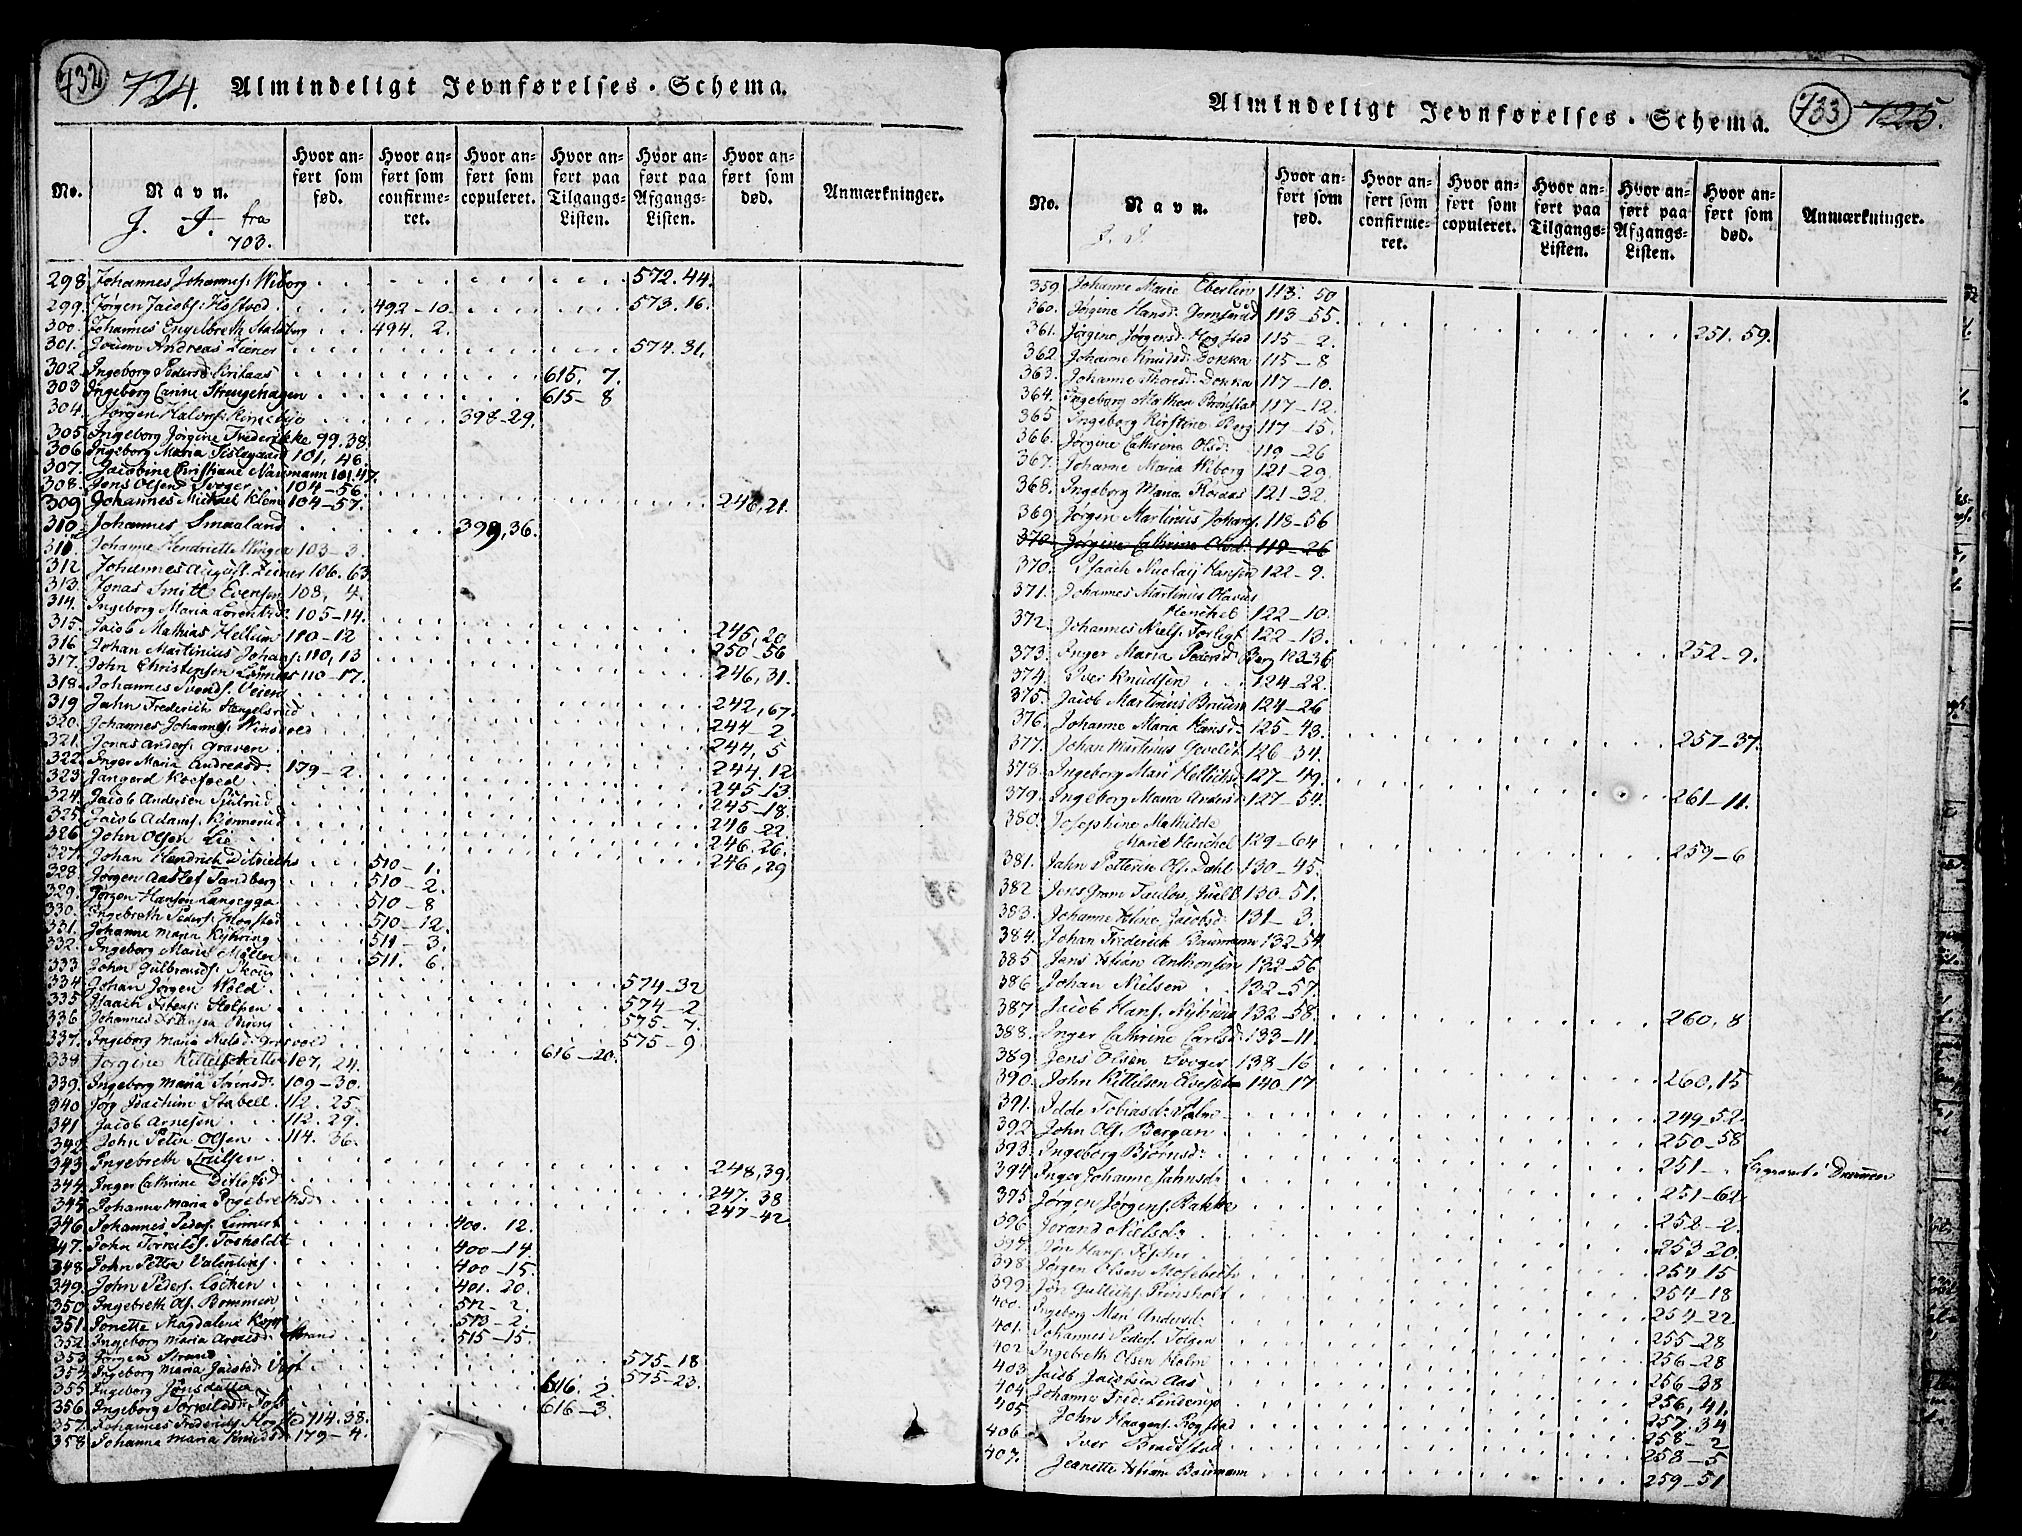 732
724.
Almindeligt Jevnførelses-Schema.
No.
Navn.
J. I. fra 703.
Hvor anført som fød.
Hvor anført som confirmeret.
Hvor anført som copuleret.
Hvor anført paa Tilgangs-Listen.
Hvor anført paa Afgangs-Listen.
Hvor anført som død.
Anmærkninger.
298. Johannes Johannes: Wiborg 572.44.
299. Jørgen Jacobs: 492-10. 573.16.
300. Johannes Engelbreth 494. 2.
301. Andreas Ziener 574.31.
302. Ingeborg Pedersd: 615. 7.
303. Ingeborg Carine 615- 8
304. Jørgen Halvors: 398-29.
305. Ingeborg Jørgine Frederikke 99.38.
306. Ingeborg Maria 101, 46.
307. Jacobine Christiane Naumann 101.47.
308. Jens Olsen Svoger 104-56.
309. Johannes Michael 104-57. 246,21.
310. Johannes Smaaland 399,36.
311. Johanne Hendriette Winger 103-3.
312. Johannes August Ziener 106.63.
313. Jonas Smitt Evensen 108, 4.
314. Ingeborg Maria 105-14.
315. Jacob Mathias Hellum 110-12 245,20
316. Johan Martinius Johans: 110,13 250-56
317. John Christensen 110-17. 246,31.
318. Johannes Svends: Veien
319. Jahn Frederich 242,67.
320. Johannes Johannes: 244-2
321. Jonas Anders: Graven 244,5
322. Inger Maria Andreasd: 179-2. 244.12
323. 245-13
324. Jacob Andersen 245-18.
325. Jacob Adams: 246-22.
326. John Olsen Lie 246.26.
327. Johan Hendrich 510-1. 246,29
328. Jørgen Sandberg 510-2.
329. Jørgen Hansen Langegga 510-8
330. Ingebreth Peders: Hogstad 510-12.
331. Johanna Maria 511-3.
332. Ingeborg Marie Møller 511. 6.
333. John Gulbrands:
334. Johan Jørgen Wold 574-32
335. Isaach 574-2
336. Johannes 575-7.
337. Ingeborg Maria Nielsd: 575-9
338. Jørgine 107, 24. 616-20.
339. Ingeborg Maria Sørensd: 109-30.
340. Joachim Stabell 112. 25.
341. Jacob Arnesen 112. 29.
342. John Peter Olsen 114. 36.
343. Ingebreth Truilsen 248,39.
344. Inger Cathrine 247.38
345. Johanne Maria 247-42
346. Johannes Peders: 400. 12.
347. John 400-14.
348. John Petter Valentins: 400-15.
349. John Peders: Løcken 401.20.
350. Ingebreth Ols: Bommen 512-2.
351. Jonette Magdalena 513-2.
352. Ingeborg Maria 515-15.
353. Jørgen Strand 575-18
354. Ingeborg Maria 575-23.
355. Ingeborg Jonsdatter 616. 2
356. Ingeborg 616-3.
357. Johannes Frederich 114.38.
358. Johanna Maria Knudsd: 179-4.
Almindeligt Jevnførelses-Schema.
733
725.
No.
Navn.
J. I.
Hvor anført som fød.
Hvor anført som confirmeret.
Hvor anført som copuleret.
Hvor anført paa Tilgangs-Listen.
Hvor anført paa Afgangs-Listen.
Hvor anført som død.
Anmærkninger.
359. Johanne Maria Eberlin 113. 50
360. Jørgine Hansd: 113-55.
361. Jørgine Jørgensd: Hogstad 115-2. 251.59.
362. Johanne Knudsd: Dokka 115-8
363. Johanne Thoresd: Dokka 117-10.
364. Ingeborg Mathea 117-12.
365. Ingeborg Kirstine Berg 117-15.
366. Jørgine Cathrine Olsd: 119-26
367. Johanne Maria Wiborg 121-29.
368. Ingeborg Maria 121-32.
369. Jørgen Martinius Johans: 113-56
370. Jørgine Cathrine Olsd: 119-26
370. Isaach Nicolaij Hansen 122-9.
371. Johannes Martinius Olavus
Henchel 122-10.
372. Johannes Niels: 122-13.
373. Inger Maria Pedersd: Berg 123-36 252-9.
374. Iver Knudsen 124-22.
375. Jacob Martinius 124-26
376. Johanne Maria Hansd: 125-43.
377. Johan Martinius 126-34. 257-37.
378. Ingeborg Mari 127-49.
379. Ingeborg Maria Andersd: 127-54. 261-11.
380. Josephine Mathilde
Marie Henchel 129-64 259-6
381. Jahn Petterin Ols: Dahl 130-45.
382. Jens Gram 130-51.
383. Johanne Jacobsd: 131-3.
384. Johan Frederich Baumann 132-54.
385. Jens Anthonsen 132-56
386. Johan Nielsen 132-57.
387. Jacob Hans: 132-58. 260,8
388. Inger Cathrine Carlsd: 133-11.
389. Jens Olsen Svoger 138-16
390. John Kittilsen 140-17 260,15
391. Idde Tobiasd: 249-52.
392. John Ols: Bergan 250-58
393. Ingeborg Biørnsd: 251- Begravet i Drammen
394. Inger Johanne Jahnsd: 251-62.
395. Jørgen Jørgens: Bakke 252-2.
396. Jorand Nielsd: 253-20.
397. Hans: Fischer 254-15
398. Jørgen Olsen 254-18
399. 254-22
400. Ingeborg Mari Andersd: 255-28
401. Johannes Peders: 256-28
402. Ingebreth Olsen Holm 256-38
403. Jacob Jacobsen Aas 256,41.
404. Johanne Fred: 257,34
405. John Haagens: Rogstad 258-2
406. Iver 258-5
407. Jeanette Baumann 259-51